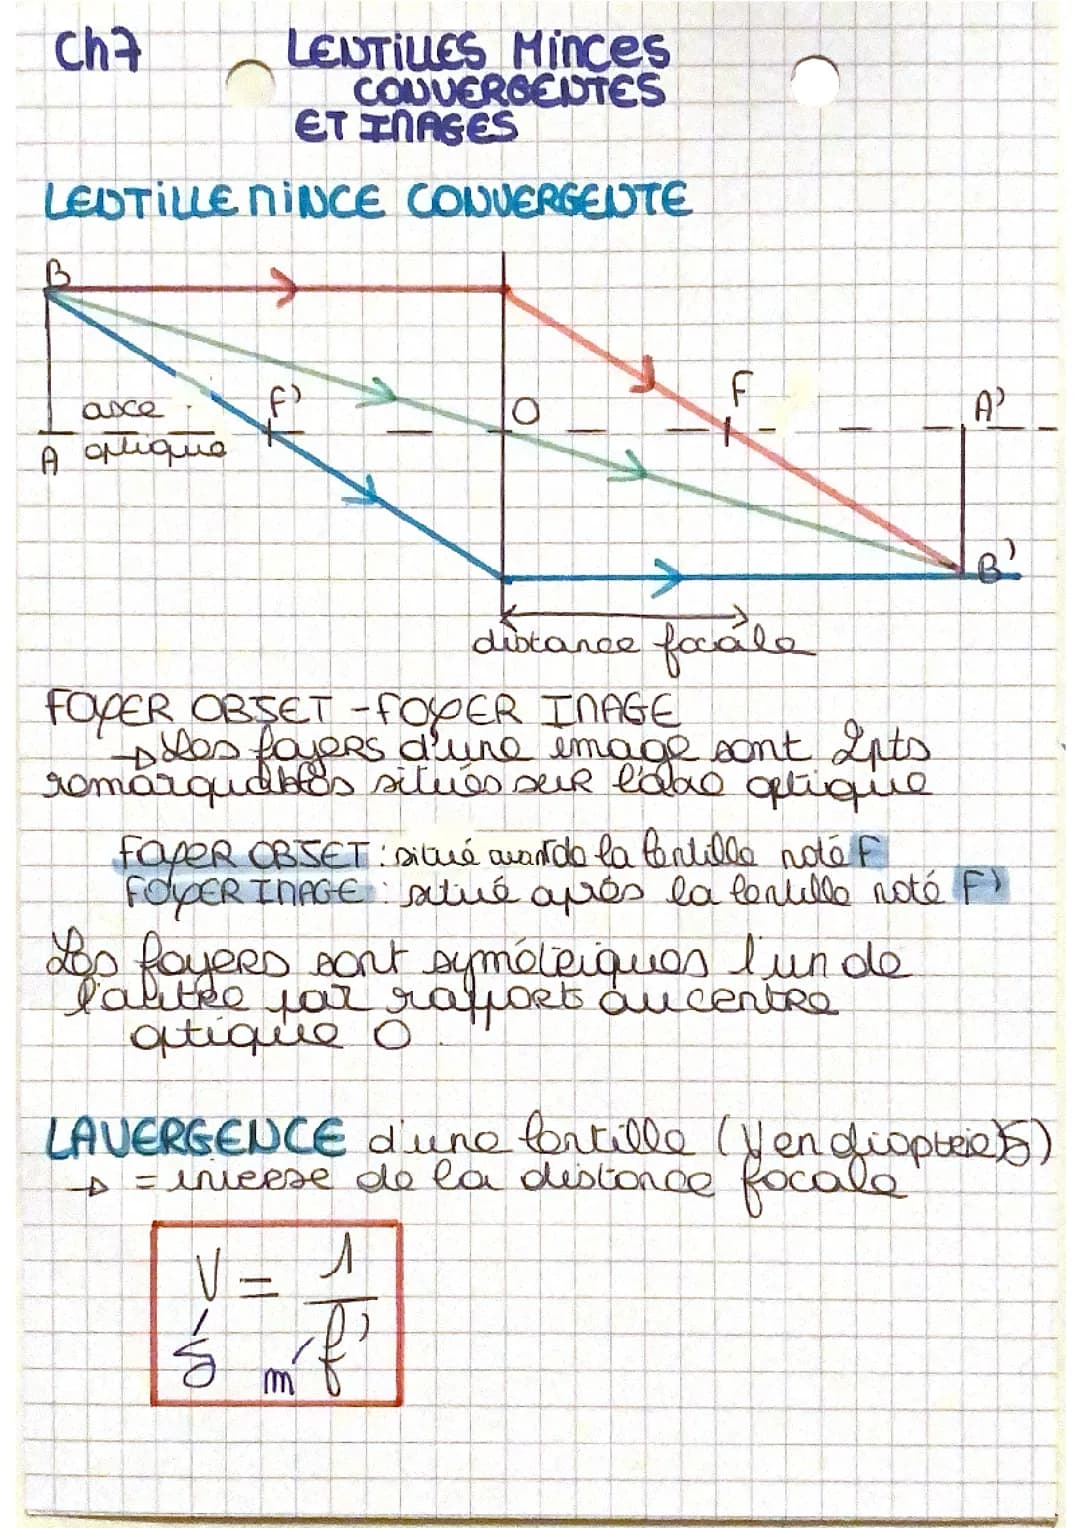 Ch7
LENTILLES MINCES
CONVERGENTES
ET IMAGES
LENTILLE MINCE CONVERGENTE
B
F'
O
F
A'
axe
optique
A
B'
distance focale
FOYER OBJET - FOYER IMAGE
→ Les foyers d'une image sont 2pts
remarquables situés sur l'axe optique
FOYER OBJET : situé avant de la lentille noté F
FOYER IMAGE : situé après la lentille noté F'
Les foyers sont symétriques l'un de
l'autre par rapport au centre
optique O.
LA VERGENCE d'une lentille (V en dioptrie δ)
→ = inverse de la distance focale
V = 1/f'
δ m